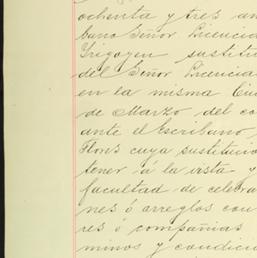 ochenta y tres an
bano Señor Licencia
Yrigoyen sustitu
del Señor Licencia
en la misma Ciu
de Marzo del co
ante el Escribano
Flores cuya sustitucio
tener á la vista y
facultad de celebra
nes ó arreglos con
res ó compañias
minos y condicio